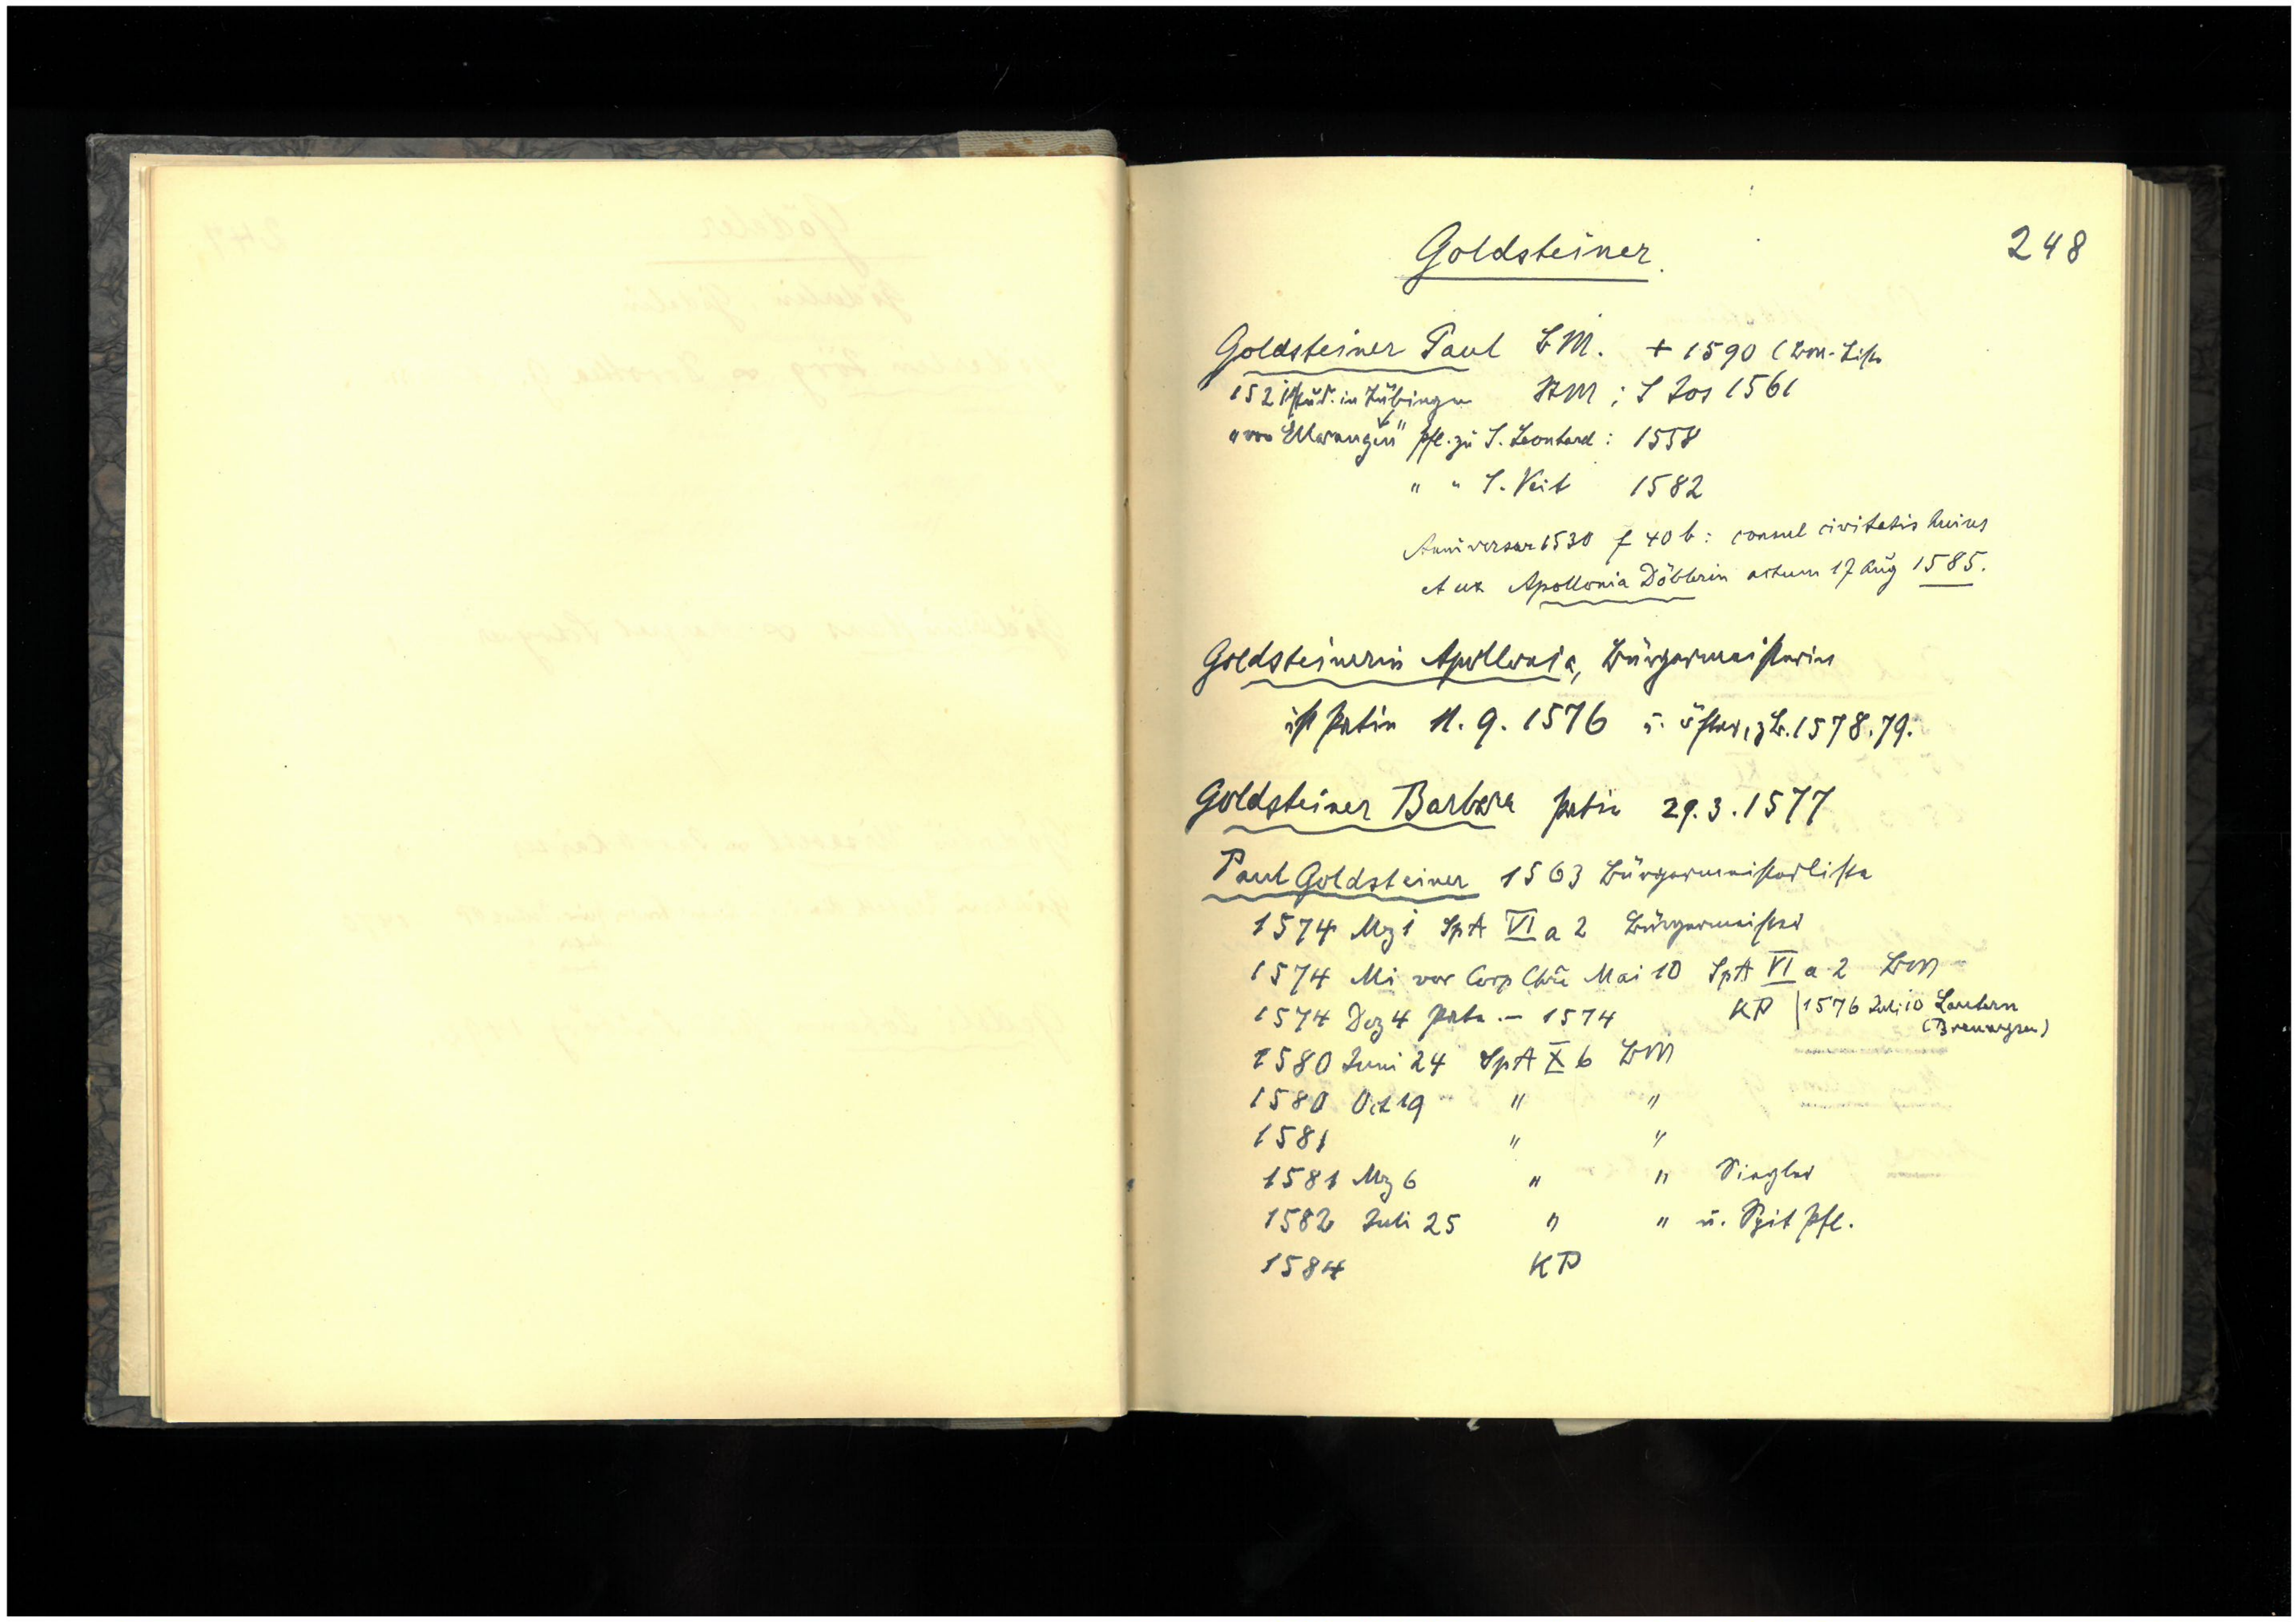 248
Goldsteiner
Goldsteiner Paul BM. + 1590 (BM-Liste
1521 stud. in Tübingen StM; S Jos 1561
"von Ellwangen" pfl. zu S. Leonhard: 1558
" " S. Veit 1582
Anniversar 1530 f 40 b: consul civitatis huius
et ux Apollonia Döblerin actum 17 Aug 1585.
Goldsteinerin Apollonia, Bürgermeisterin
ist Patin 11. 9. 1576 u. öfter, z.B. 1578. 79.
Goldsteiner Barbara Patin 29. 3. 1577
Paul Goldsteiner 1563 Bürgermeisterliste
1574 Mz 1 SpA VI a 2 Bürgermeister
1574 Mi vor Corp Chri Mai 10 SpA VI a 2 BM
1574 Dez 4 Pate - 1574 KP | 1576 Juli 10 Lautern
1580 Juni 24 SpA X b BM
1580 Oct 19 " "
1581 " "
1581 Mz 6 " " Siegler
1582 Juli 25 " " u. Spit pfl.
1584 KP